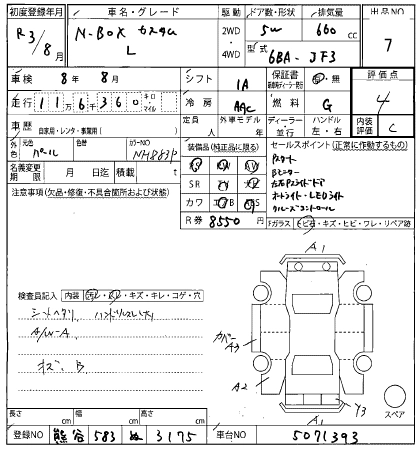 初度登録年月 車名・グレード 駆動 ドア数・形状 排気量 出品NO
R3/8月 N-BOX カスタム L 2WD・4WD 5W 660 cc 7
型式 6BA-JF3
車検 8年 8月 シフト IA 保証書 有・無 評価点 4
走行 116360 キロ・マイル 冷房 AAC 燃料 G
車歴 自家用・レンタ・事業用( ) 定員 人 外車モデル 年 ディーラー・並行 ハンドル 左・右 内装評価 C
外色 元色 パール 色替 カラーNO NH883P
装備品(純正品に限る) セールスポイント(正常に作動するもの)
名義変更期限 月 日迄 積載 t
SR
カワ
R券 8550
Pスタート
Bモニター
左右Pスライドドア
オートライト・LEDライト
クルーズコントロール
注意事項(欠品・修復・不具合箇所および状態)
Fガラス トビ石・キズ・ヒビ・ワレ・リペア跡
検査員記入 内装 キズ・キレ・コゲ・穴
シートヘタリ ハンドルスレ大
A/W-A
キズ、B
A1
カバーA3
A2
Y3
A1
スペア
長さ cm 幅 cm 高さ cm
登録NO 熊谷 583 ぬ 3175 車台NO 5071393